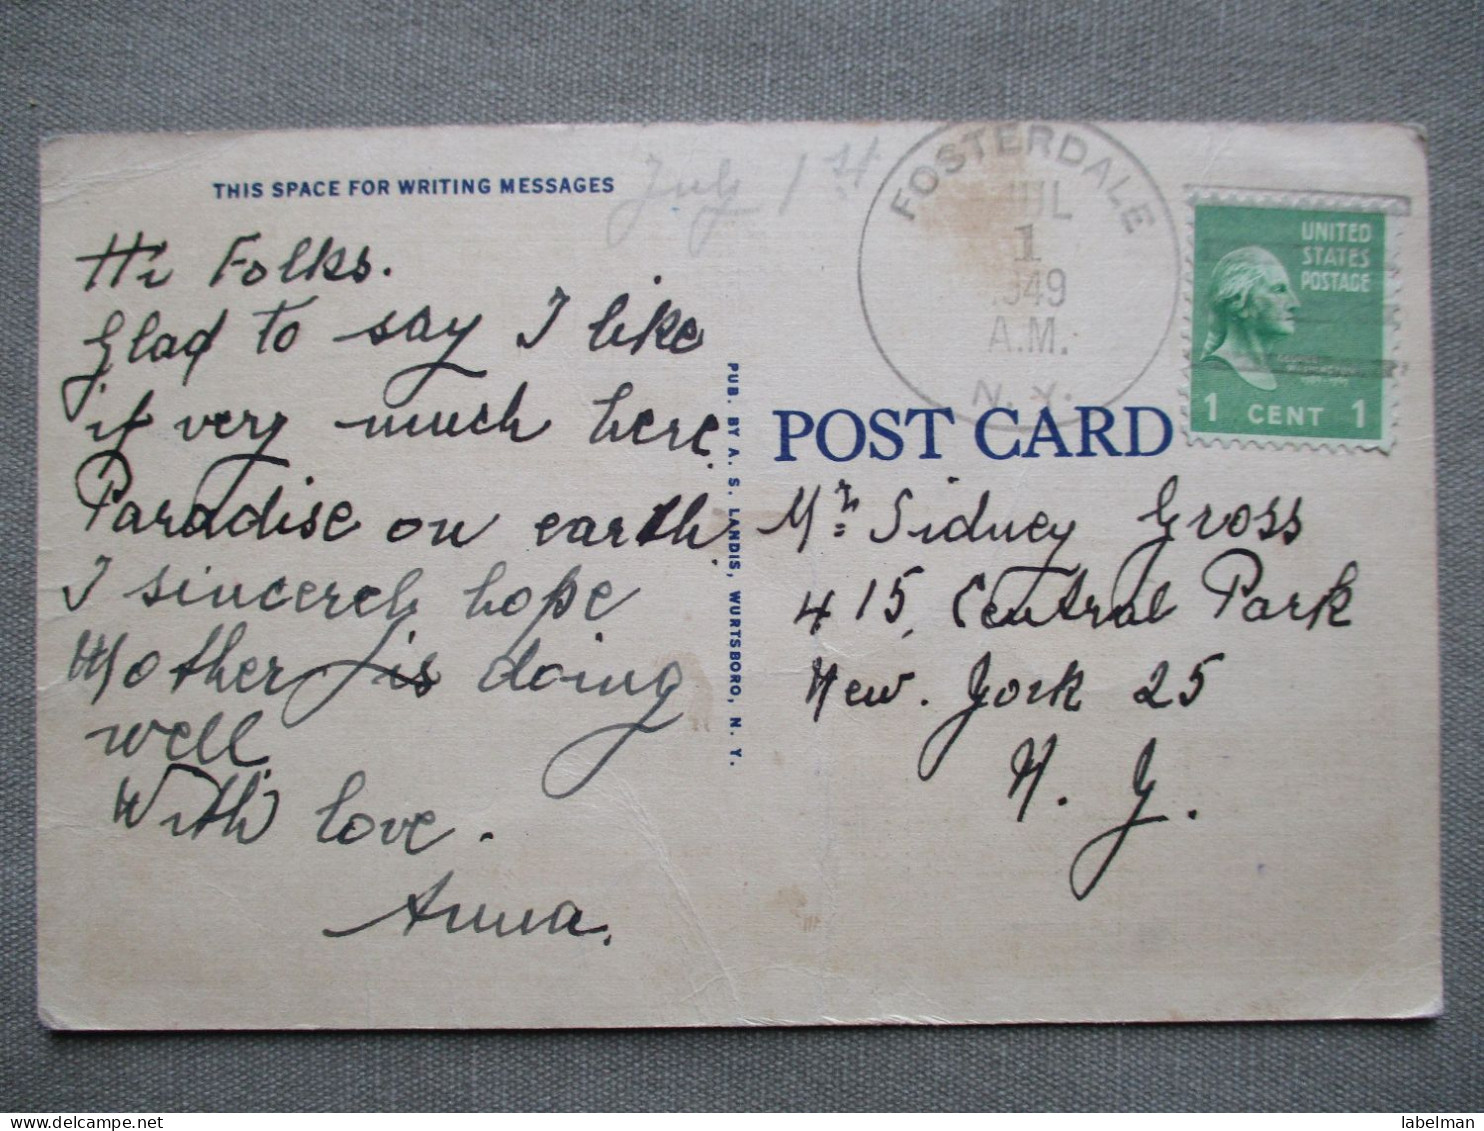 THIS SPACE FOR WRITING MESSAGES
July 1st
Hi Folks.
Glad to say I like
it very much here.
Paradise on earth.
I sincerely hope
Mother is doing
well.
With love.
Anna.
PUB. BY A. S. LANDIS, WURTSBORO, N. Y.
FOSTERDALE
JUL
1
1949
A.M.
N. Y.
UNITED
STATES
POSTAGE
1 CENT 1
POST CARD
Mr. Sidney Gross
415, Central Park
New. York 25
N. Y.
labelman